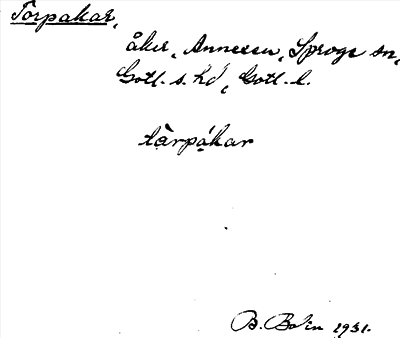 Torpakar,
åker, Annexen, Sproge sn,
Gotl. s. hd, Gotl. l.
tàrpákar
B. Bolin 1931.